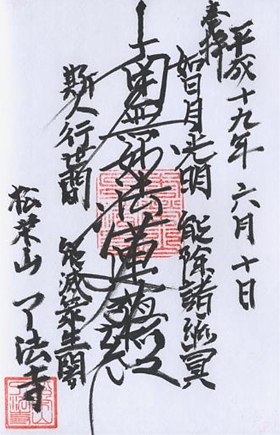 奉拝
平成十九年六月十日
如日月光明 能除諸幽冥
南無妙法蓮華経
斯人行世間 能滅衆生闇
松葉山 了法寺